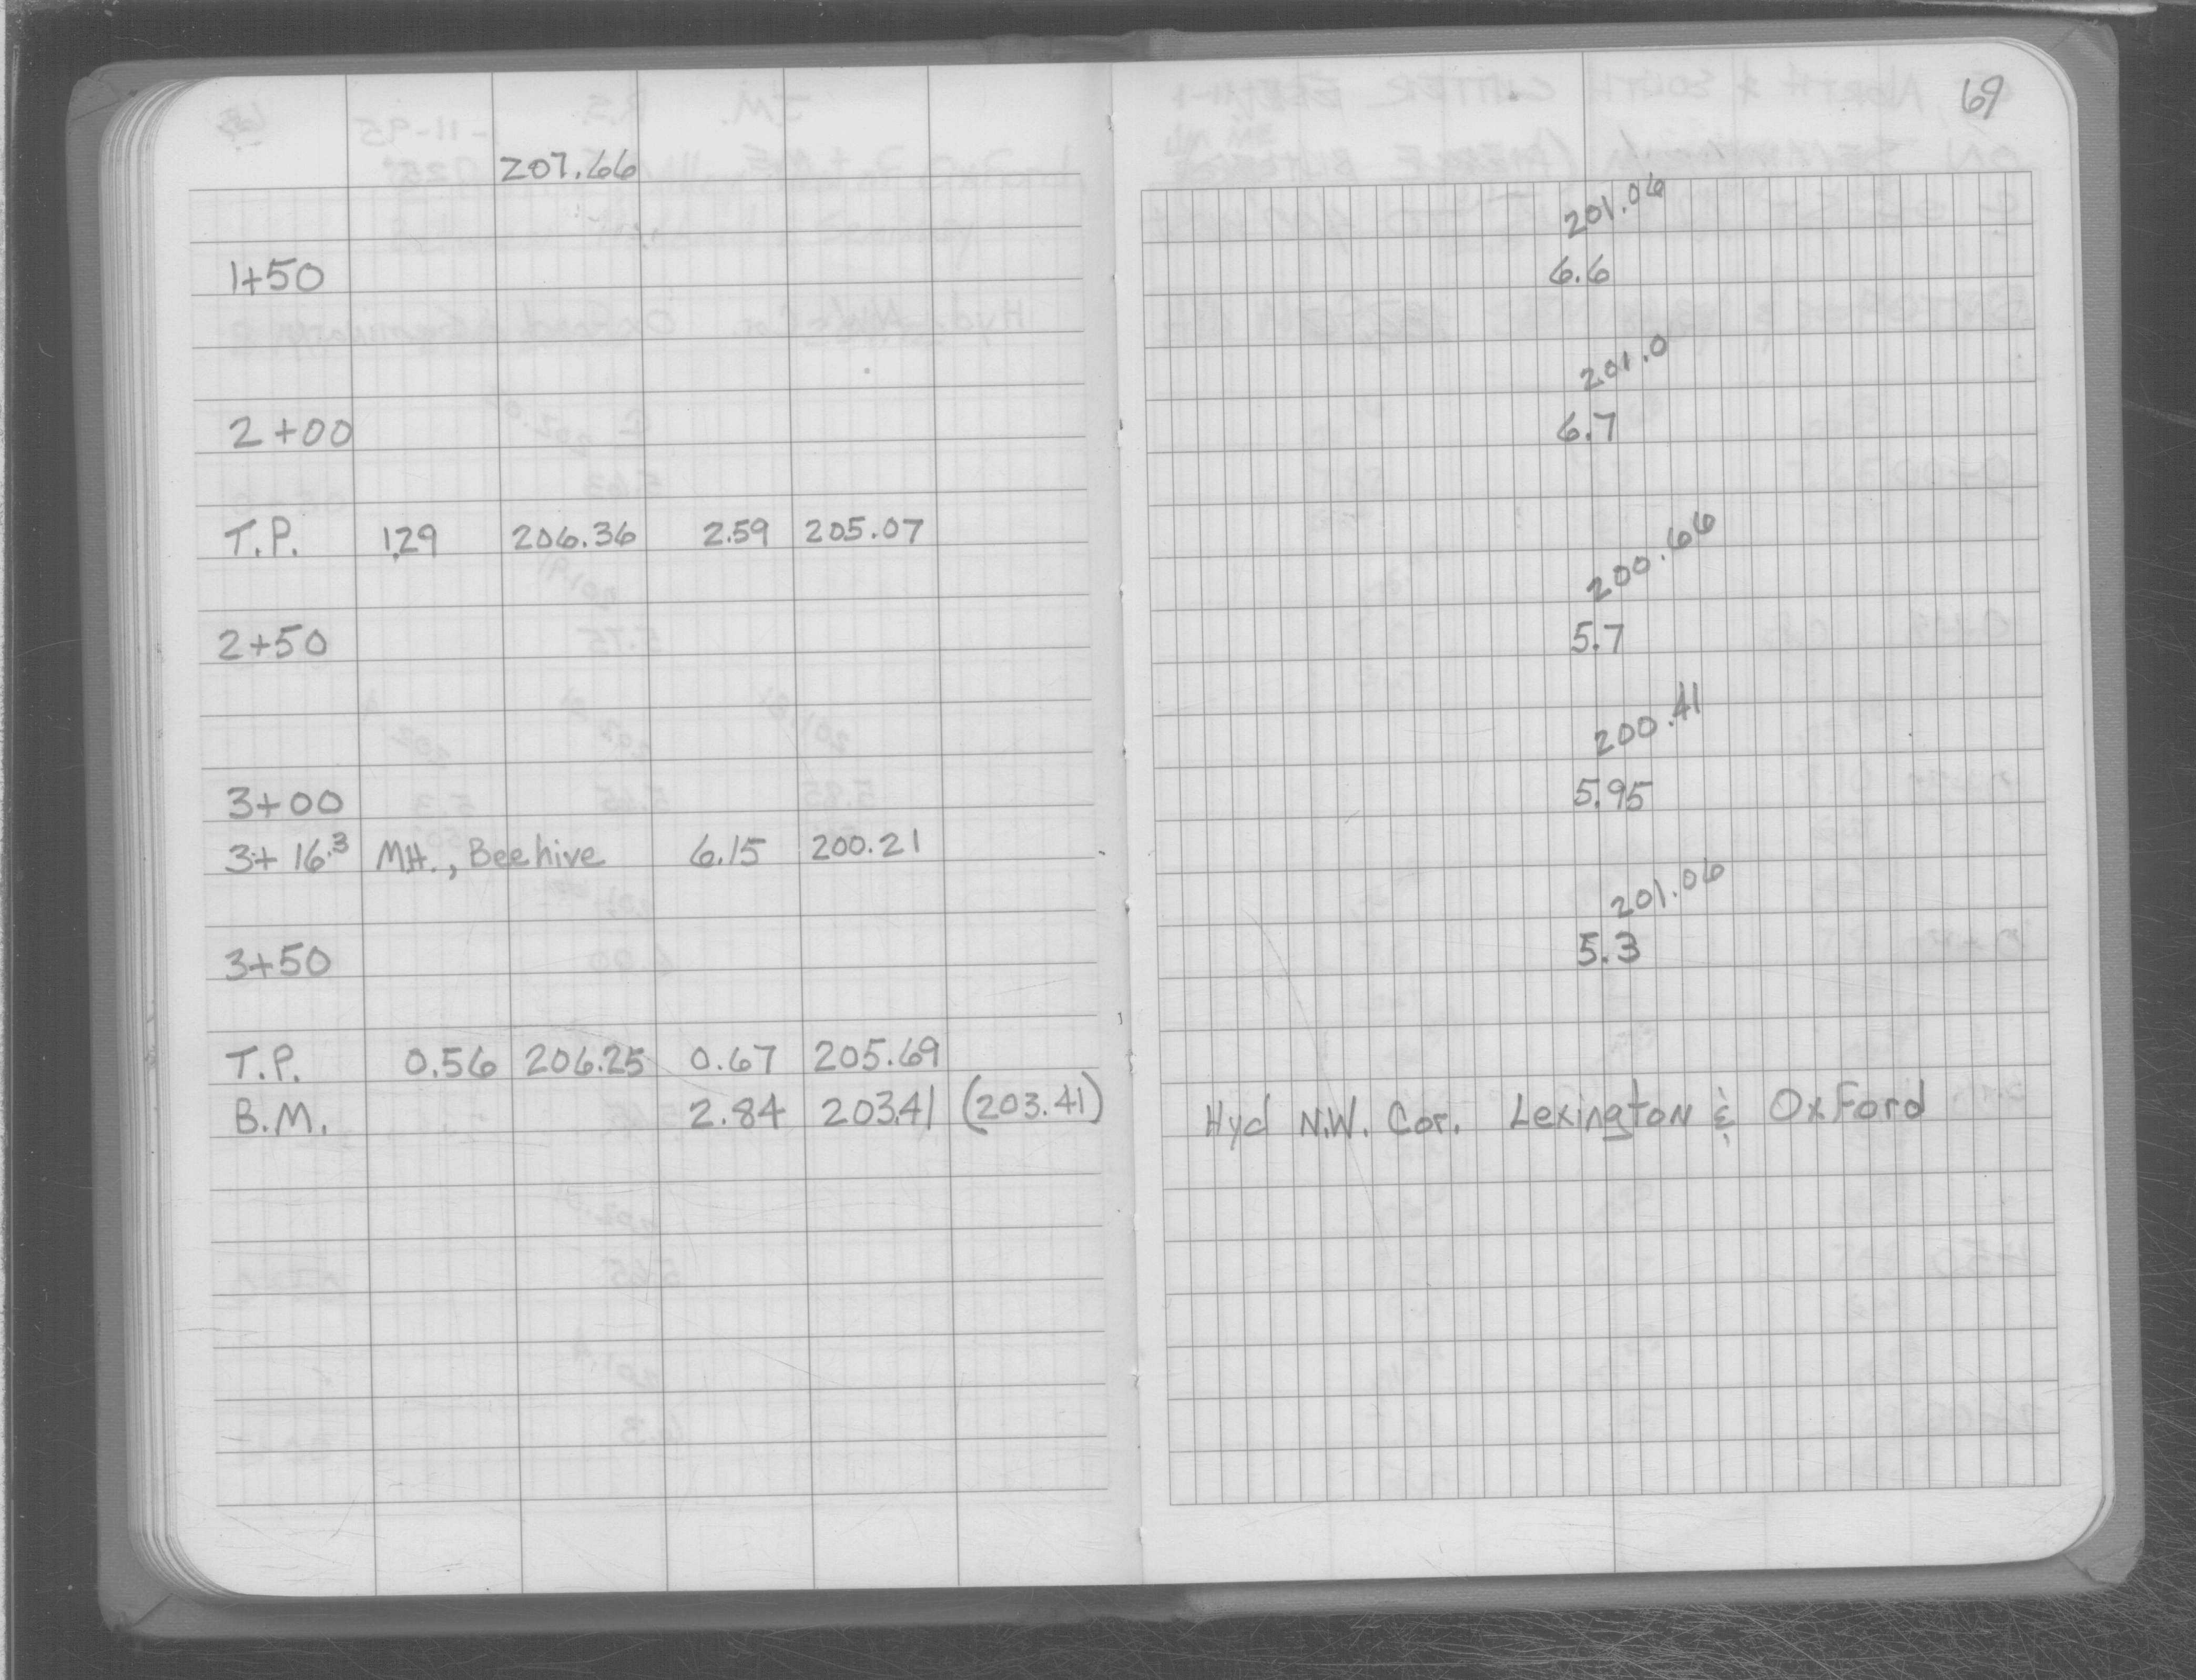 69
207.66
201.06
1+50 6.6
201.0
2+00 6.7
T.P. 1.29 206.36 2.59 205.07
200.66
2+50 5.7
200.41
3+00 5.95
3+16.3 MH., Beehive 6.15 200.21
201.06
3+50 5.3
T.P. 0.56 206.25 0.67 205.69
B.M. 2.84 203.41 (203.41) Hyd N.W. Cor. Lexington & Oxford